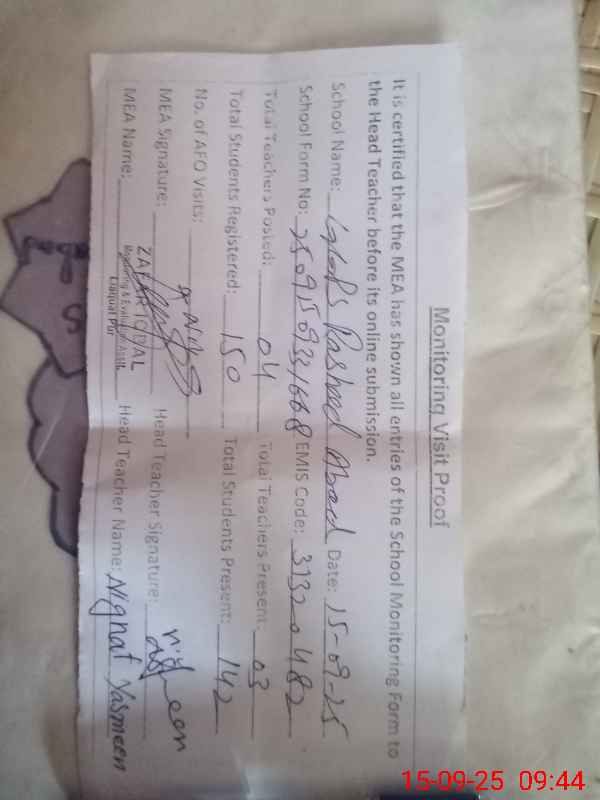 Monitoring Visit Proof
It is certified that the MEA has shown all entries of the School Monitoring Form to
the Head Teacher before its online submission.
School Name: Rasheed Abad Date: 15-09-25
School Form No: EMIS Code: 31320482
Total Teachers Posted: 04 Total Teachers Present: 03
Total Students Registered: 150 Total Students Present: 142
No. of AFO Visits:
MEA Signature: Head Teacher Signature:
MEA Name: ZAFAR IQBAL Head Teacher Name: Nighat Yasmeen
Monitoring & Evaluation Asstt.
Liaquat Pur
15-09-25 09:44